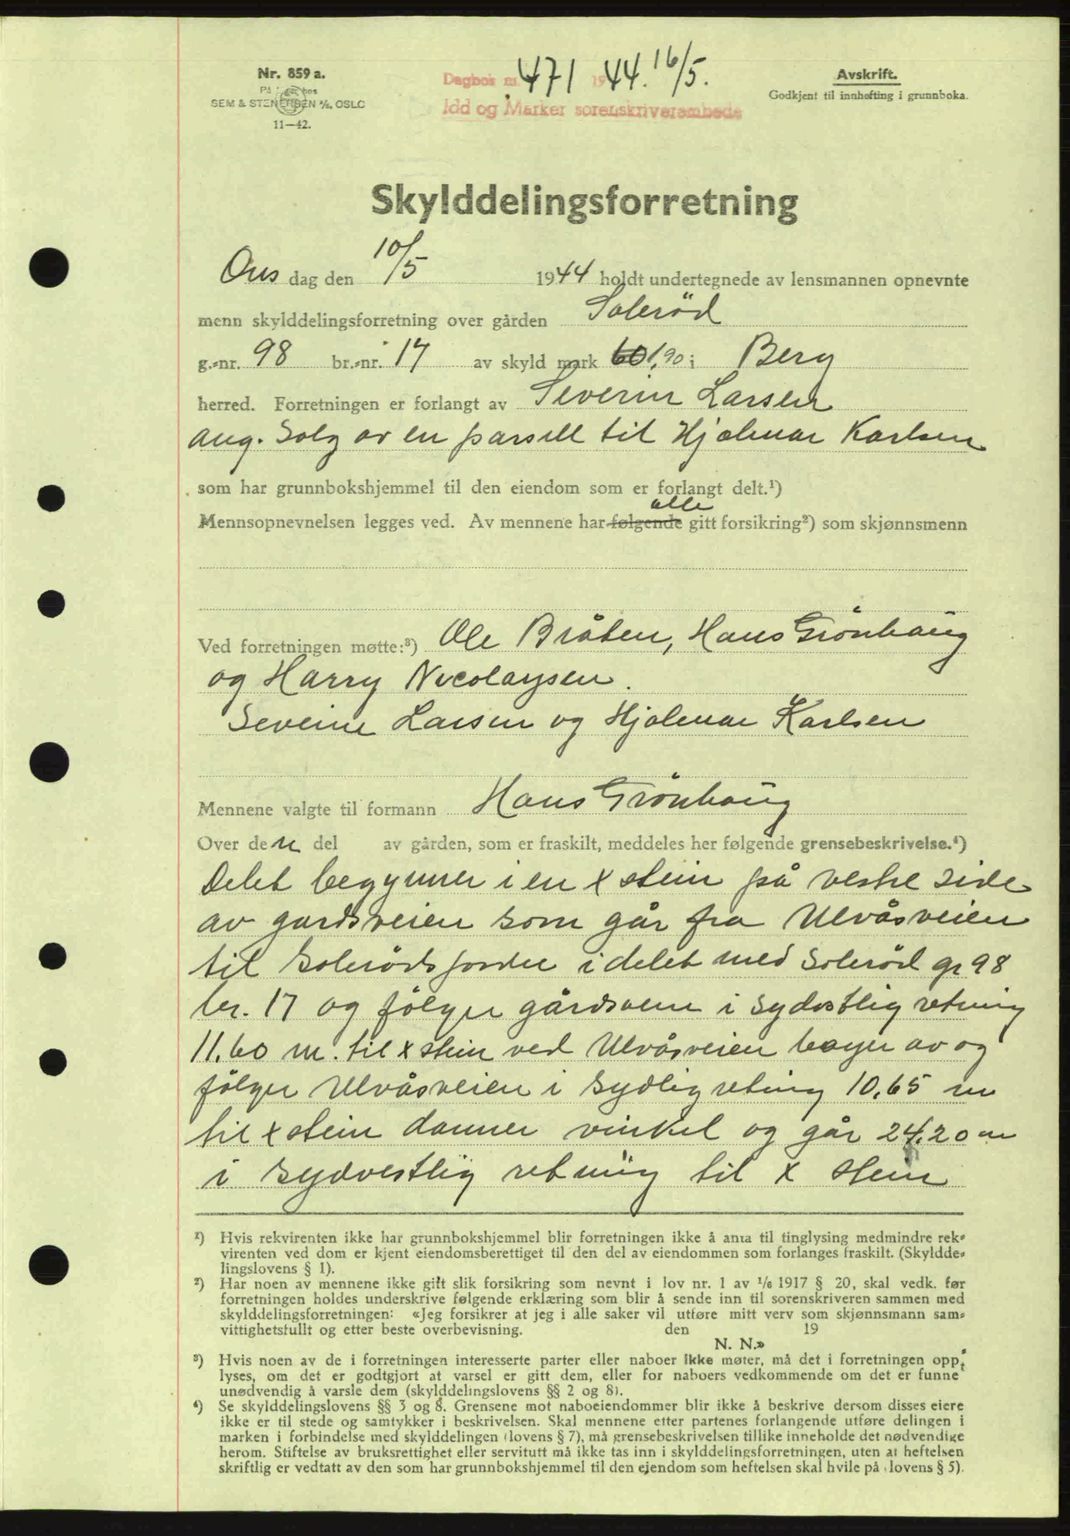 Nr. 859 a.
SEM & STENERSEN A/S. OSLO
11—42.
Dagbok nr. 471 1944. 16/5.
Idd og Marker sorenskriverembede
Avskrift.
Godkjent til innhefting i grunnboka.
Skylddelingsforretning
Ons dag den 10/5 1944 holdt undertegnede av lensmannen opnevnte
menn skylddelingsforretning over gården Solerød
g.-nr. 98 br.-nr. 17 av skyld mark 60 1,90 i Berg
herred. Forretningen er forlangt av Severin Larsen
ang. Salg av en parsell til Hjalmar Karlsen
som har grunnbokshjemmel til den eiendom som er forlangt delt.¹)
Mennsopnevnelsen legges ved. Av mennene har følgende alle gitt forsikring²) som skjønnsmenn
Ved forretningen møtte:³) Ole Bråten, Hans Grönhaug
og Harry Nicolaysen.
Severin Larsen og Hjalmar Karlsen
Mennene valgte til formann Hans Grönhaug
Over den del av gården, som er fraskilt, meddeles her følgende grensebeskrivelse.⁴)
Delet begynner i en x stein på vestre side
av gardsveien som går fra Ulvåsveien
til Solerødsjordet i delet med Solerød gr 98
br. 17 og fölger gårdsveien i Sydvestlig retning
11.60 m. til x stein ved Ulvåsveien bøyer av og
fölger Ulvåsveien i Sydlig retning 10,65 m
til x stein danner vinkel og går 24.20 m
i Sydvestlig retning til x stein
¹) Hvis rekvirenten ikke har grunnbokshjemmel blir forretningen ikke å anta til tinglysing medmindre rek-
virenten ved dom er kjent eiendomsberettiget til den del av eiendommen som forlanges fraskilt. (Skyldde-
lingslovens § 1).
²) Har noen av mennene ikke gitt slik forsikring som nevnt i lov nr. 1 av 1/6 1917 § 20, skal vedk. før
forretningen holdes underskrive følgende erklæring som blir å sende inn til sorenskriveren sammen med
skylddelingsforretningen: «Jeg forsikrer at jeg i alle saker vil utføre mitt verv som skjønnsmann sam-
vittighetsfullt og etter beste overbevisning. den 19
N. N.»
³) Hvis noen av de i forretningen interesserte parter eller naboer ikke møter, må det i forretningen opp-
lyses, om det er godtgjort at varsel er gitt dem, eller for naboers vedkommende om det er funnet
unødvendig å varsle dem (skylddelingslovens §§ 2 og 8).
⁴) Se skylddelingslovens §§ 3 og 8. Grensene mot naboeiendommer blir ikke å beskrive dersom disses eiere
ikke er til stede og samtykker i beskrivelsen. Skal mennene etter partenes forlangende utføre delingen i
marken i forbindelse med skylddelingen (lovens § 7), må grensebeskrivelsen tillike inneholde det nødvendige
herom. Stiftelse av bruksrettighet eller servitutt må ikke tas inn i skylddelingsforretningen, uten at heftelsen
skriftlig er vedtatt av den som har grunnbokshjemmel til den eiendom som heftelsen skal hvile på (lovens § 5).